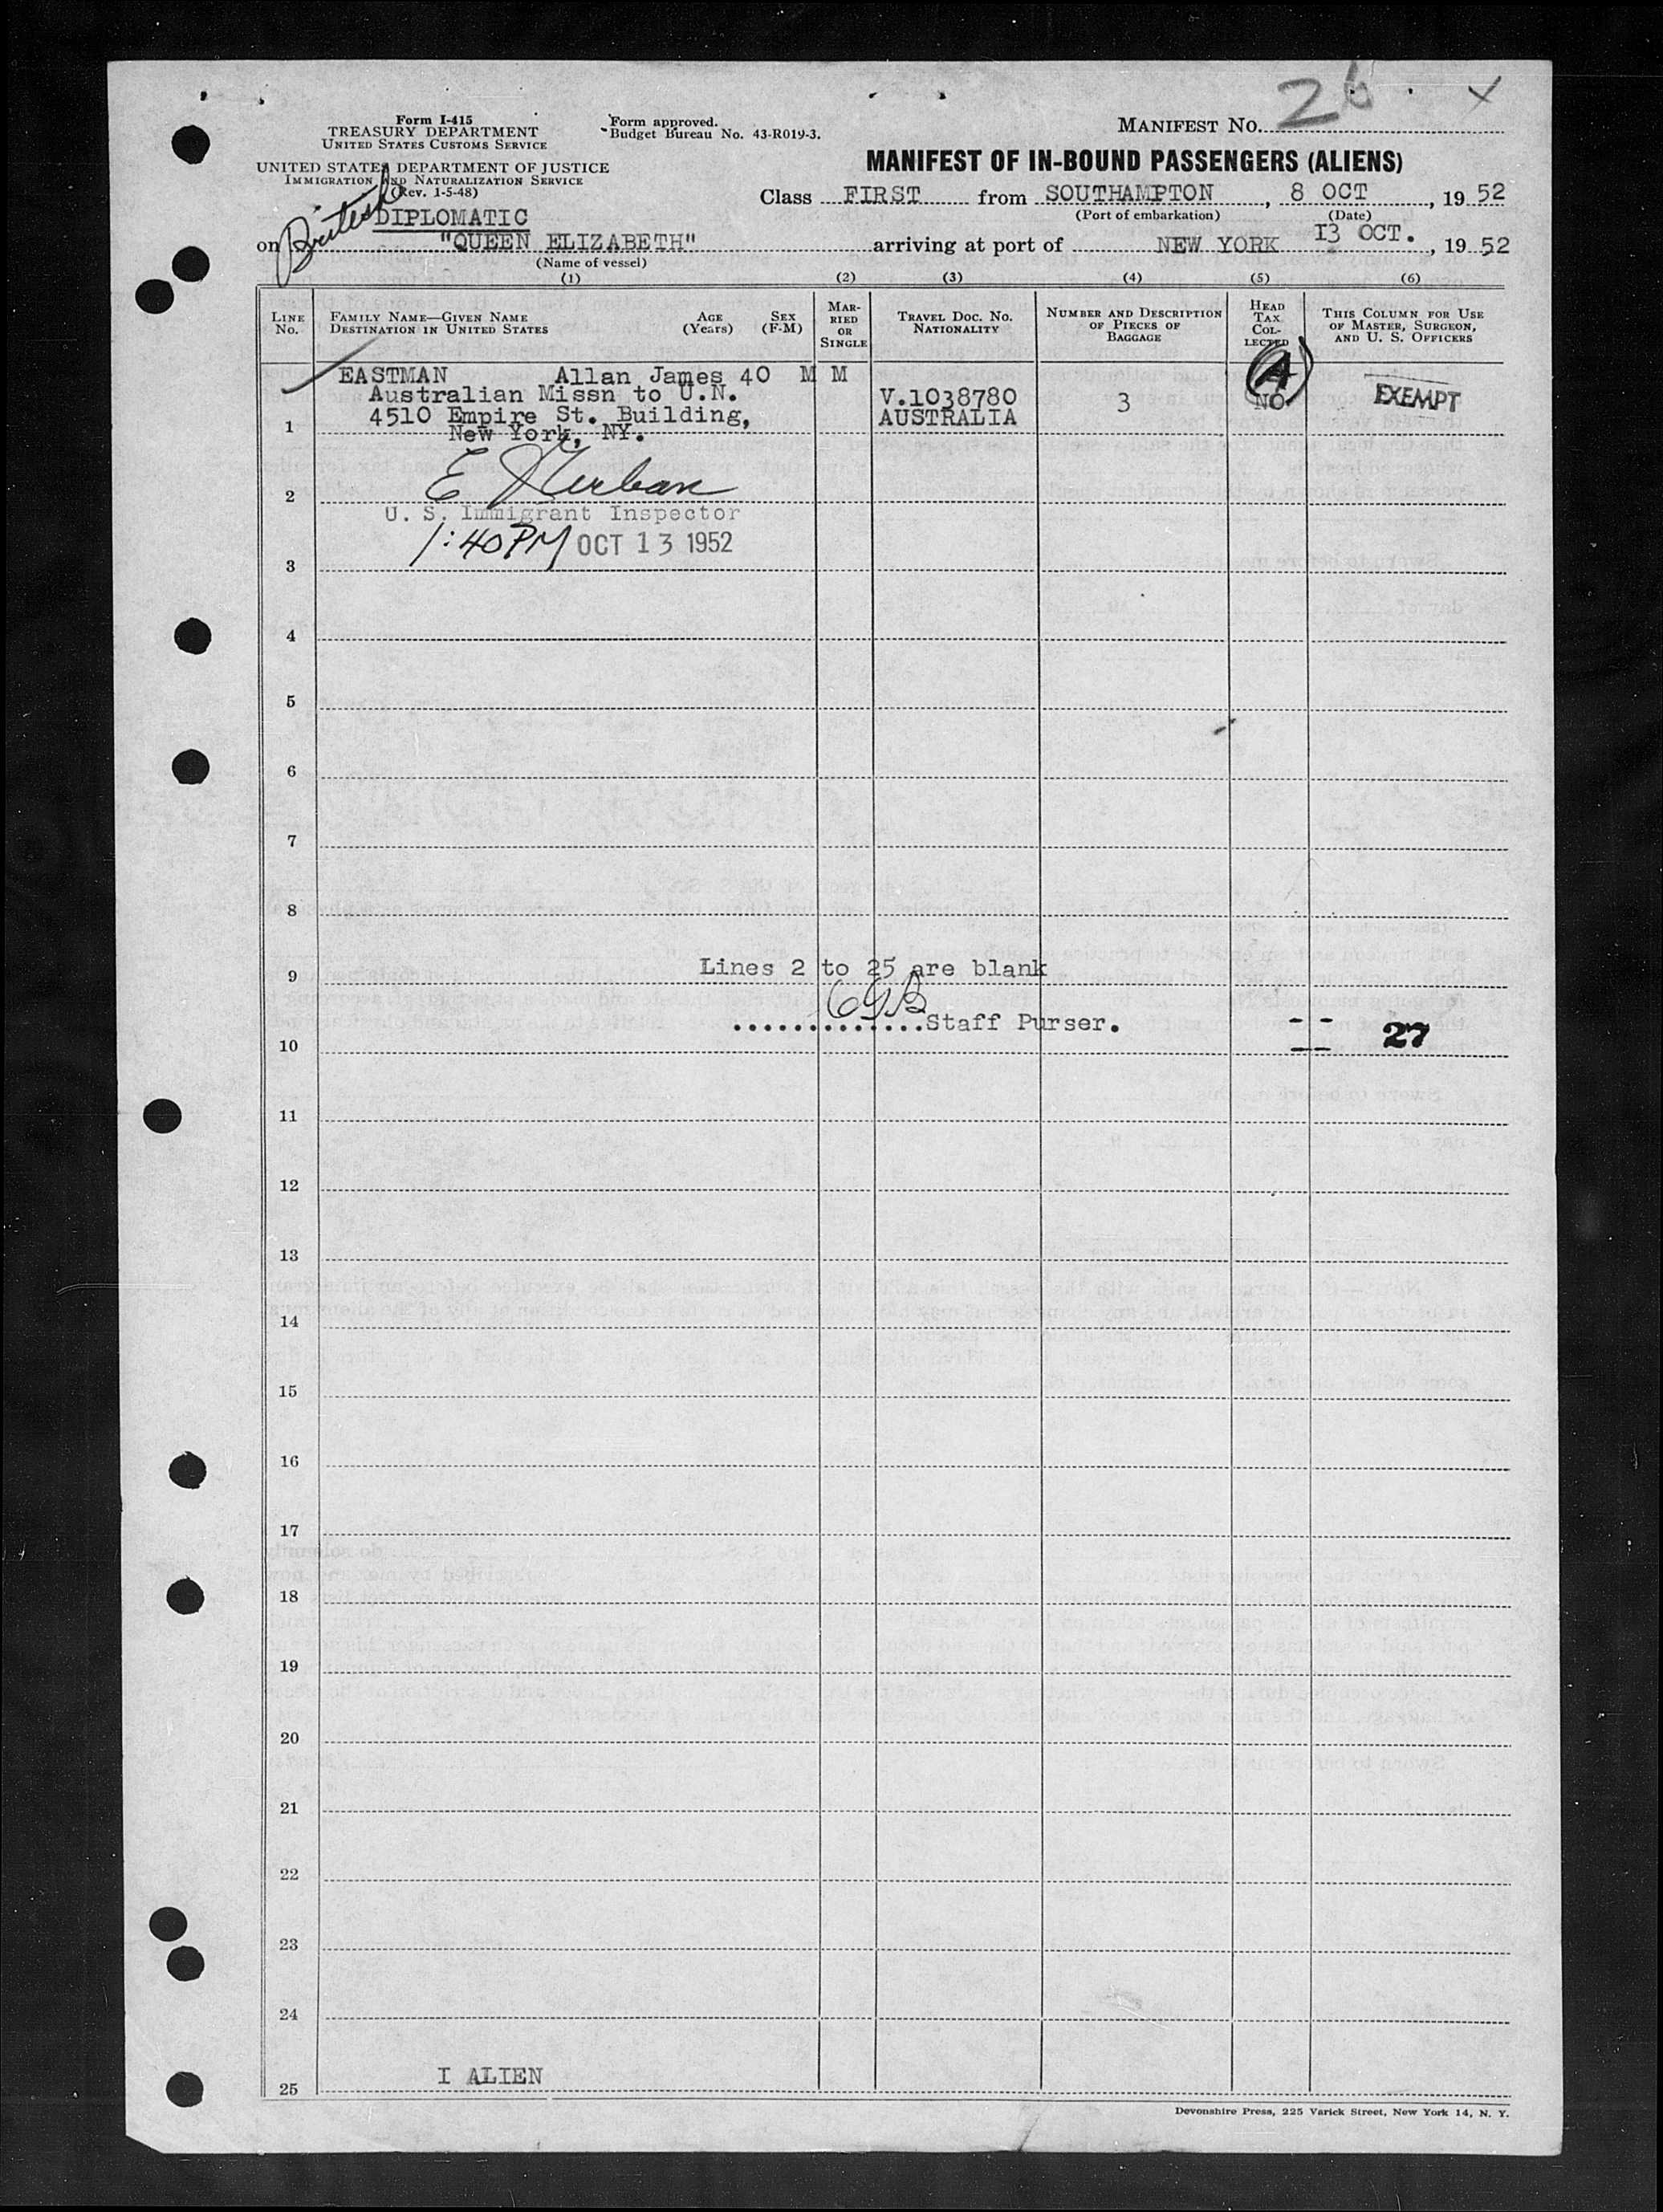 26 x
Form I-415
TREASURY DEPARTMENT
UNITED STATES CUSTOMS SERVICE
Form approved.
Budget Bureau No. 43-R019-3.
MANIFEST NO.
UNITED STATES DEPARTMENT OF JUSTICE
IMMIGRATION AND NATURALIZATION SERVICE
(Rev. 1-5-48)
MANIFEST OF IN-BOUND PASSENGERS (ALIENS)
Class FIRST from SOUTHAMPTON, 8 OCT, 19 52
(Port of embarkation) (Date)
British DIPLOMATIC
on "QUEEN ELIZABETH" arriving at port of NEW YORK 13 OCT., 19 52
(Name of vessel)
(1) (2) (3) (4) (5) (6)
LINE NO.
FAMILY NAME—GIVEN NAME
DESTINATION IN UNITED STATES
AGE (Years)
SEX (F-M)
MARRIED OR SINGLE
TRAVEL DOC. NO.
NATIONALITY
NUMBER AND DESCRIPTION OF PIECES OF BAGGAGE
HEAD TAX COLLECTED
THIS COLUMN FOR USE OF MASTER, SURGEON, AND U. S. OFFICERS
EASTMAN Allan James 40 M M
Australian Missn to U.N. V.1038780 3 A NO EXEMPT
1 4510 Empire St. Building, AUSTRALIA
New York, NY.
2
U. S. Immigrant Inspector
1:40PM OCT 13 1952
3
4
5
6
7
8
Lines 2 to 25 are blank
9
Staff Purser.
27
10
11
12
13
14
15
16
17
18
19
20
21
22
23
24
I ALIEN
25
Devonshire Press, 225 Varick Street, New York 14, N. Y.